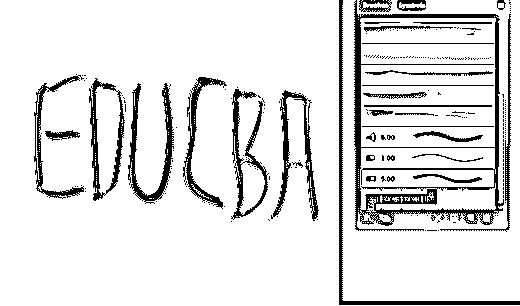 EDUCBA
5.00
1.00
5.00